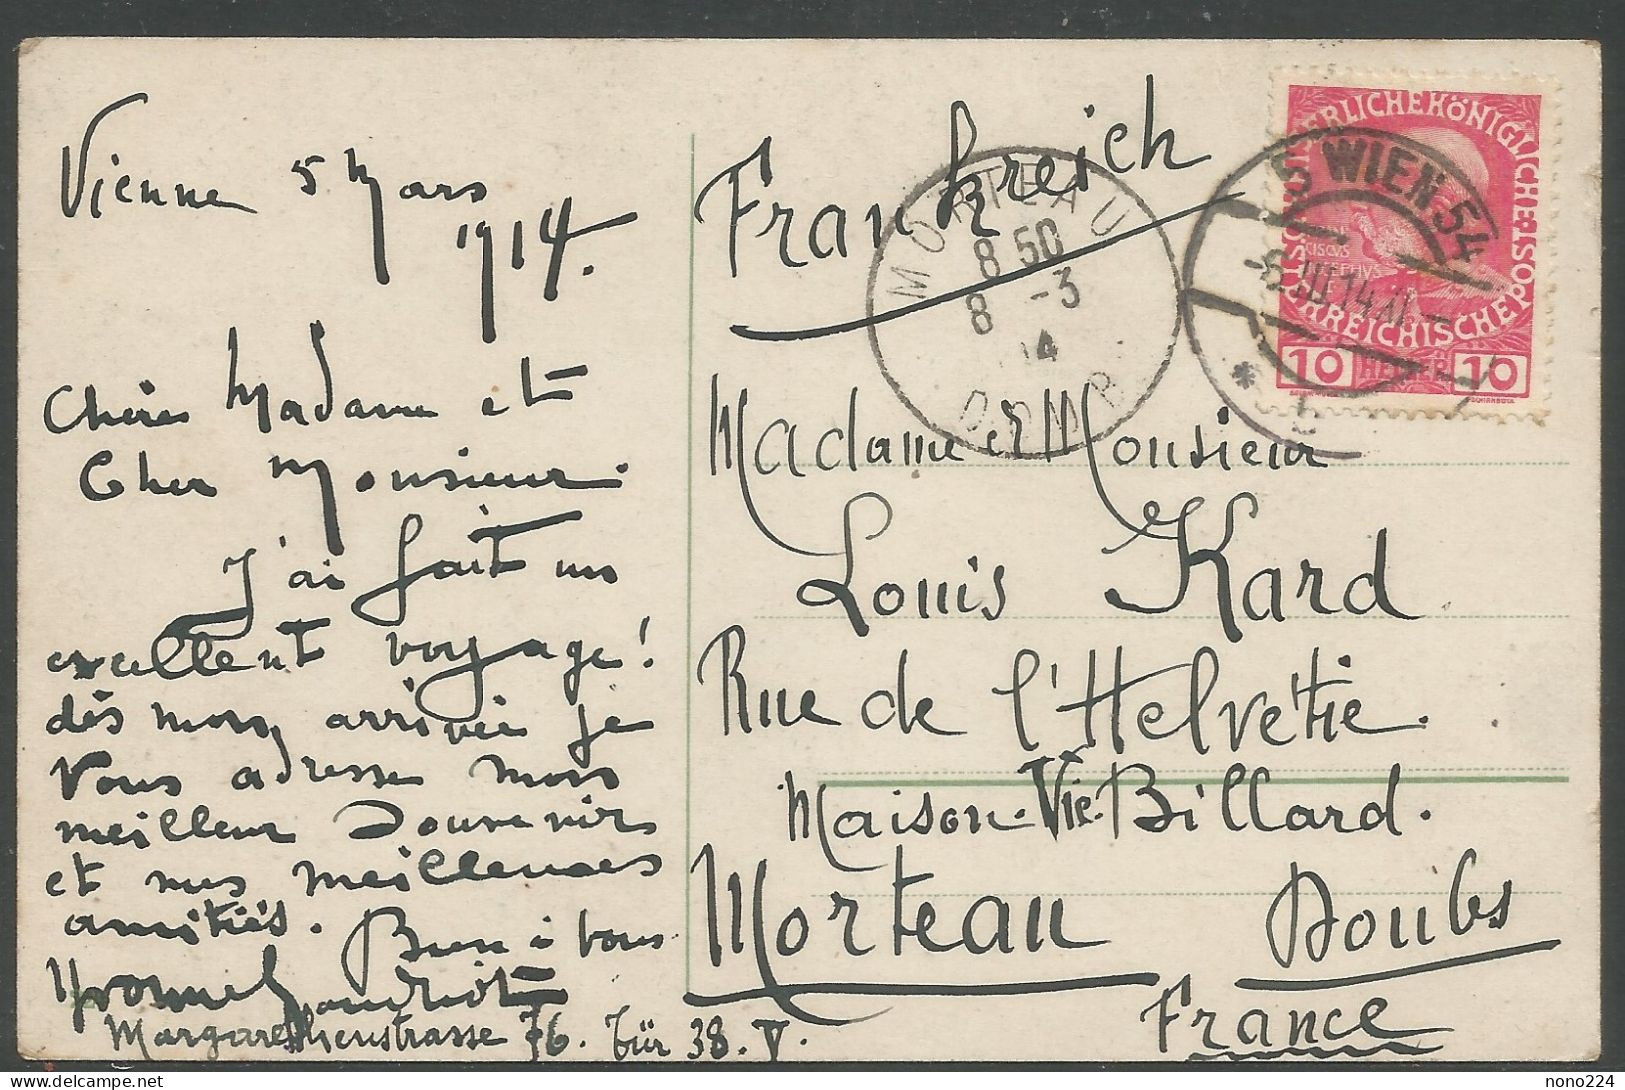 Vienne 5 Mars
1914.
Chère Madame et
Cher Monsieur.
J'ai fait un
excellent voyage!
dès mon arrivée je
Vous adresse mon
meilleur Souvenir
et mes meilleures
amitiés. Bien à vous
Yvonne
Margarethenstrasse 76. Tür 38. V.
Frankreich
Madame et Monsieur
Louis Kard
Rue de l'Helvétie.
Maison Vie. Billard.
Morteau Doubs
France
MORTEAU
8 50
8 -3
14
DOUBS
5 WIEN 54
-6.III.14.XI-
*
KAISERLICHE KÖNIGLICHE
ÖSTERREICHISCHE POST
10 HELLER 10
nono224